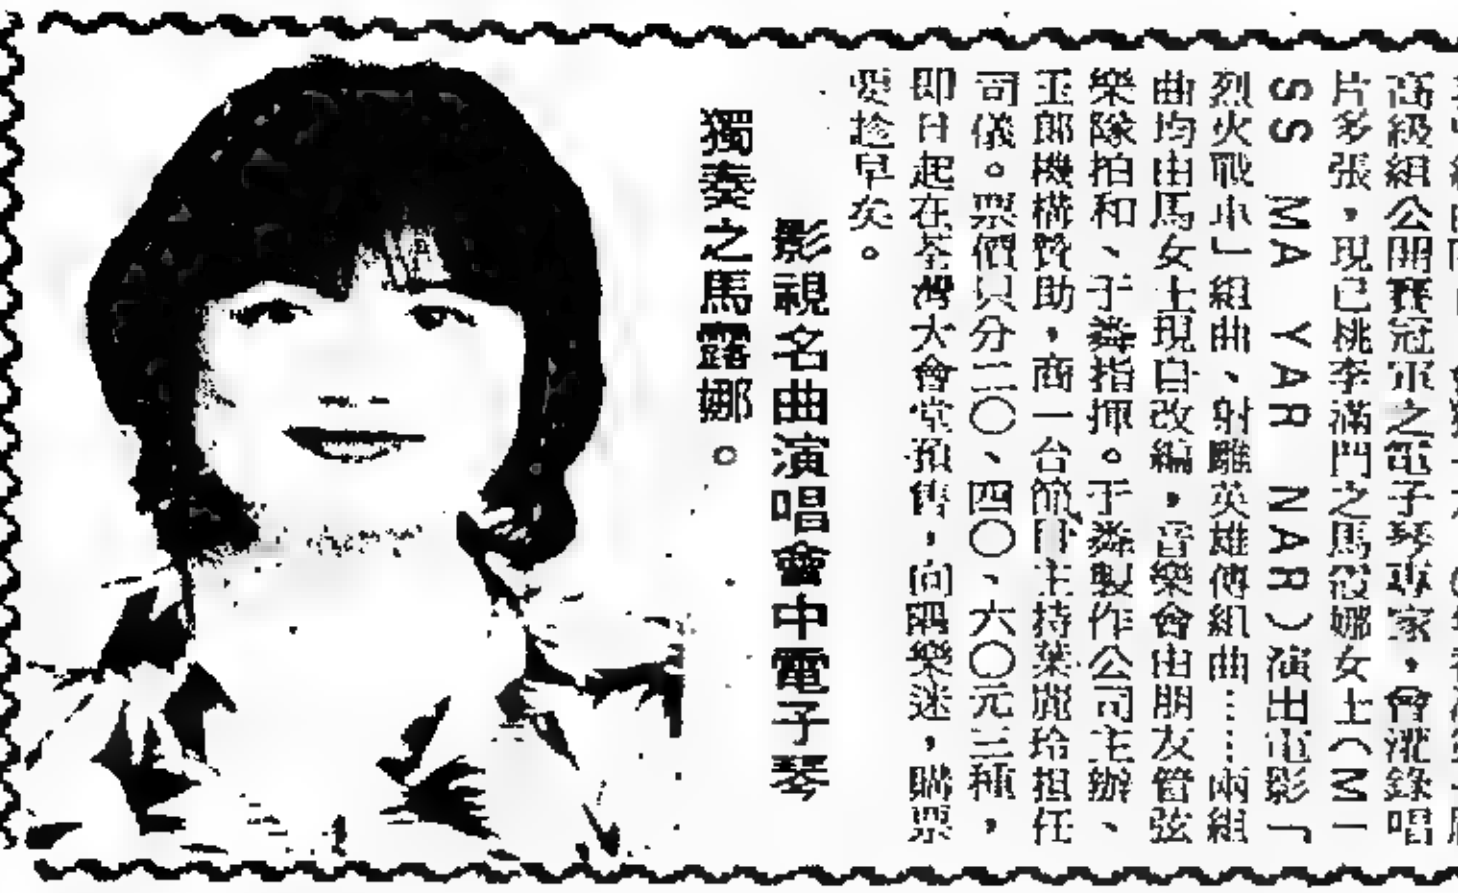 高級組公開賽冠軍之電子琴專家，曾灌錄唱
片多張，現已桃李滿門之馬露娜女士（MI
SS MA YAR NAR）演出電影「
烈火戰車」組曲、射雕英雄傳組曲……兩組
曲均由馬女士現自改編，音樂會由朋友管弦
樂隊拍和、于粦指揮。于粦製作公司主辦、
玉郎機構贊助，商一台節目主持葉麗玲担任
司儀。票價只分二〇、四〇、六〇元三種，
即日起在荃灣大會堂預售，向隅樂迷，購票
要趁早矣。
影視名曲演唱會中電子琴
獨奏之馬露娜。